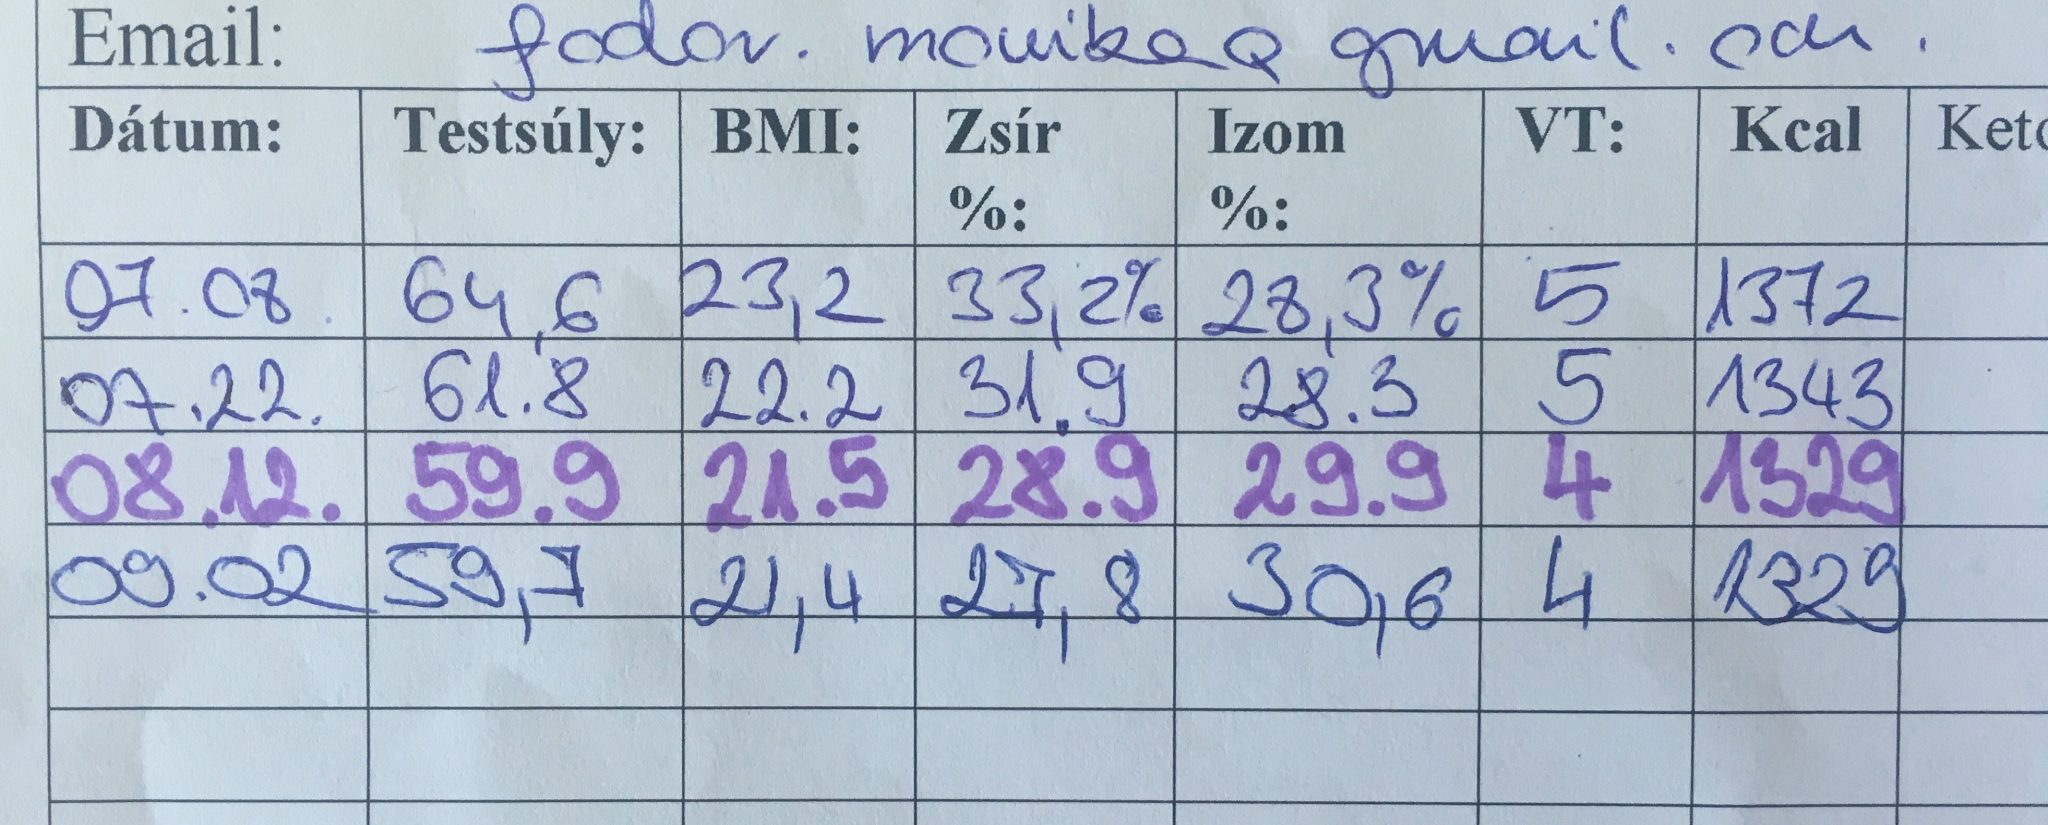 Email: fodor.monika@gmail.com.
Dátum: Testsúly: BMI: Zsír %: Izom %: VT: Kcal Keto
07.08. 64,6 23,2 33,2% 28,3% 5 1372
07.22. 61.8 22.2 31.9 28.3 5 1343
08.12. 59.9 21.5 28.9 29.9 4 1329
09.02 59,7 21,4 27,8 30,6 4 1329